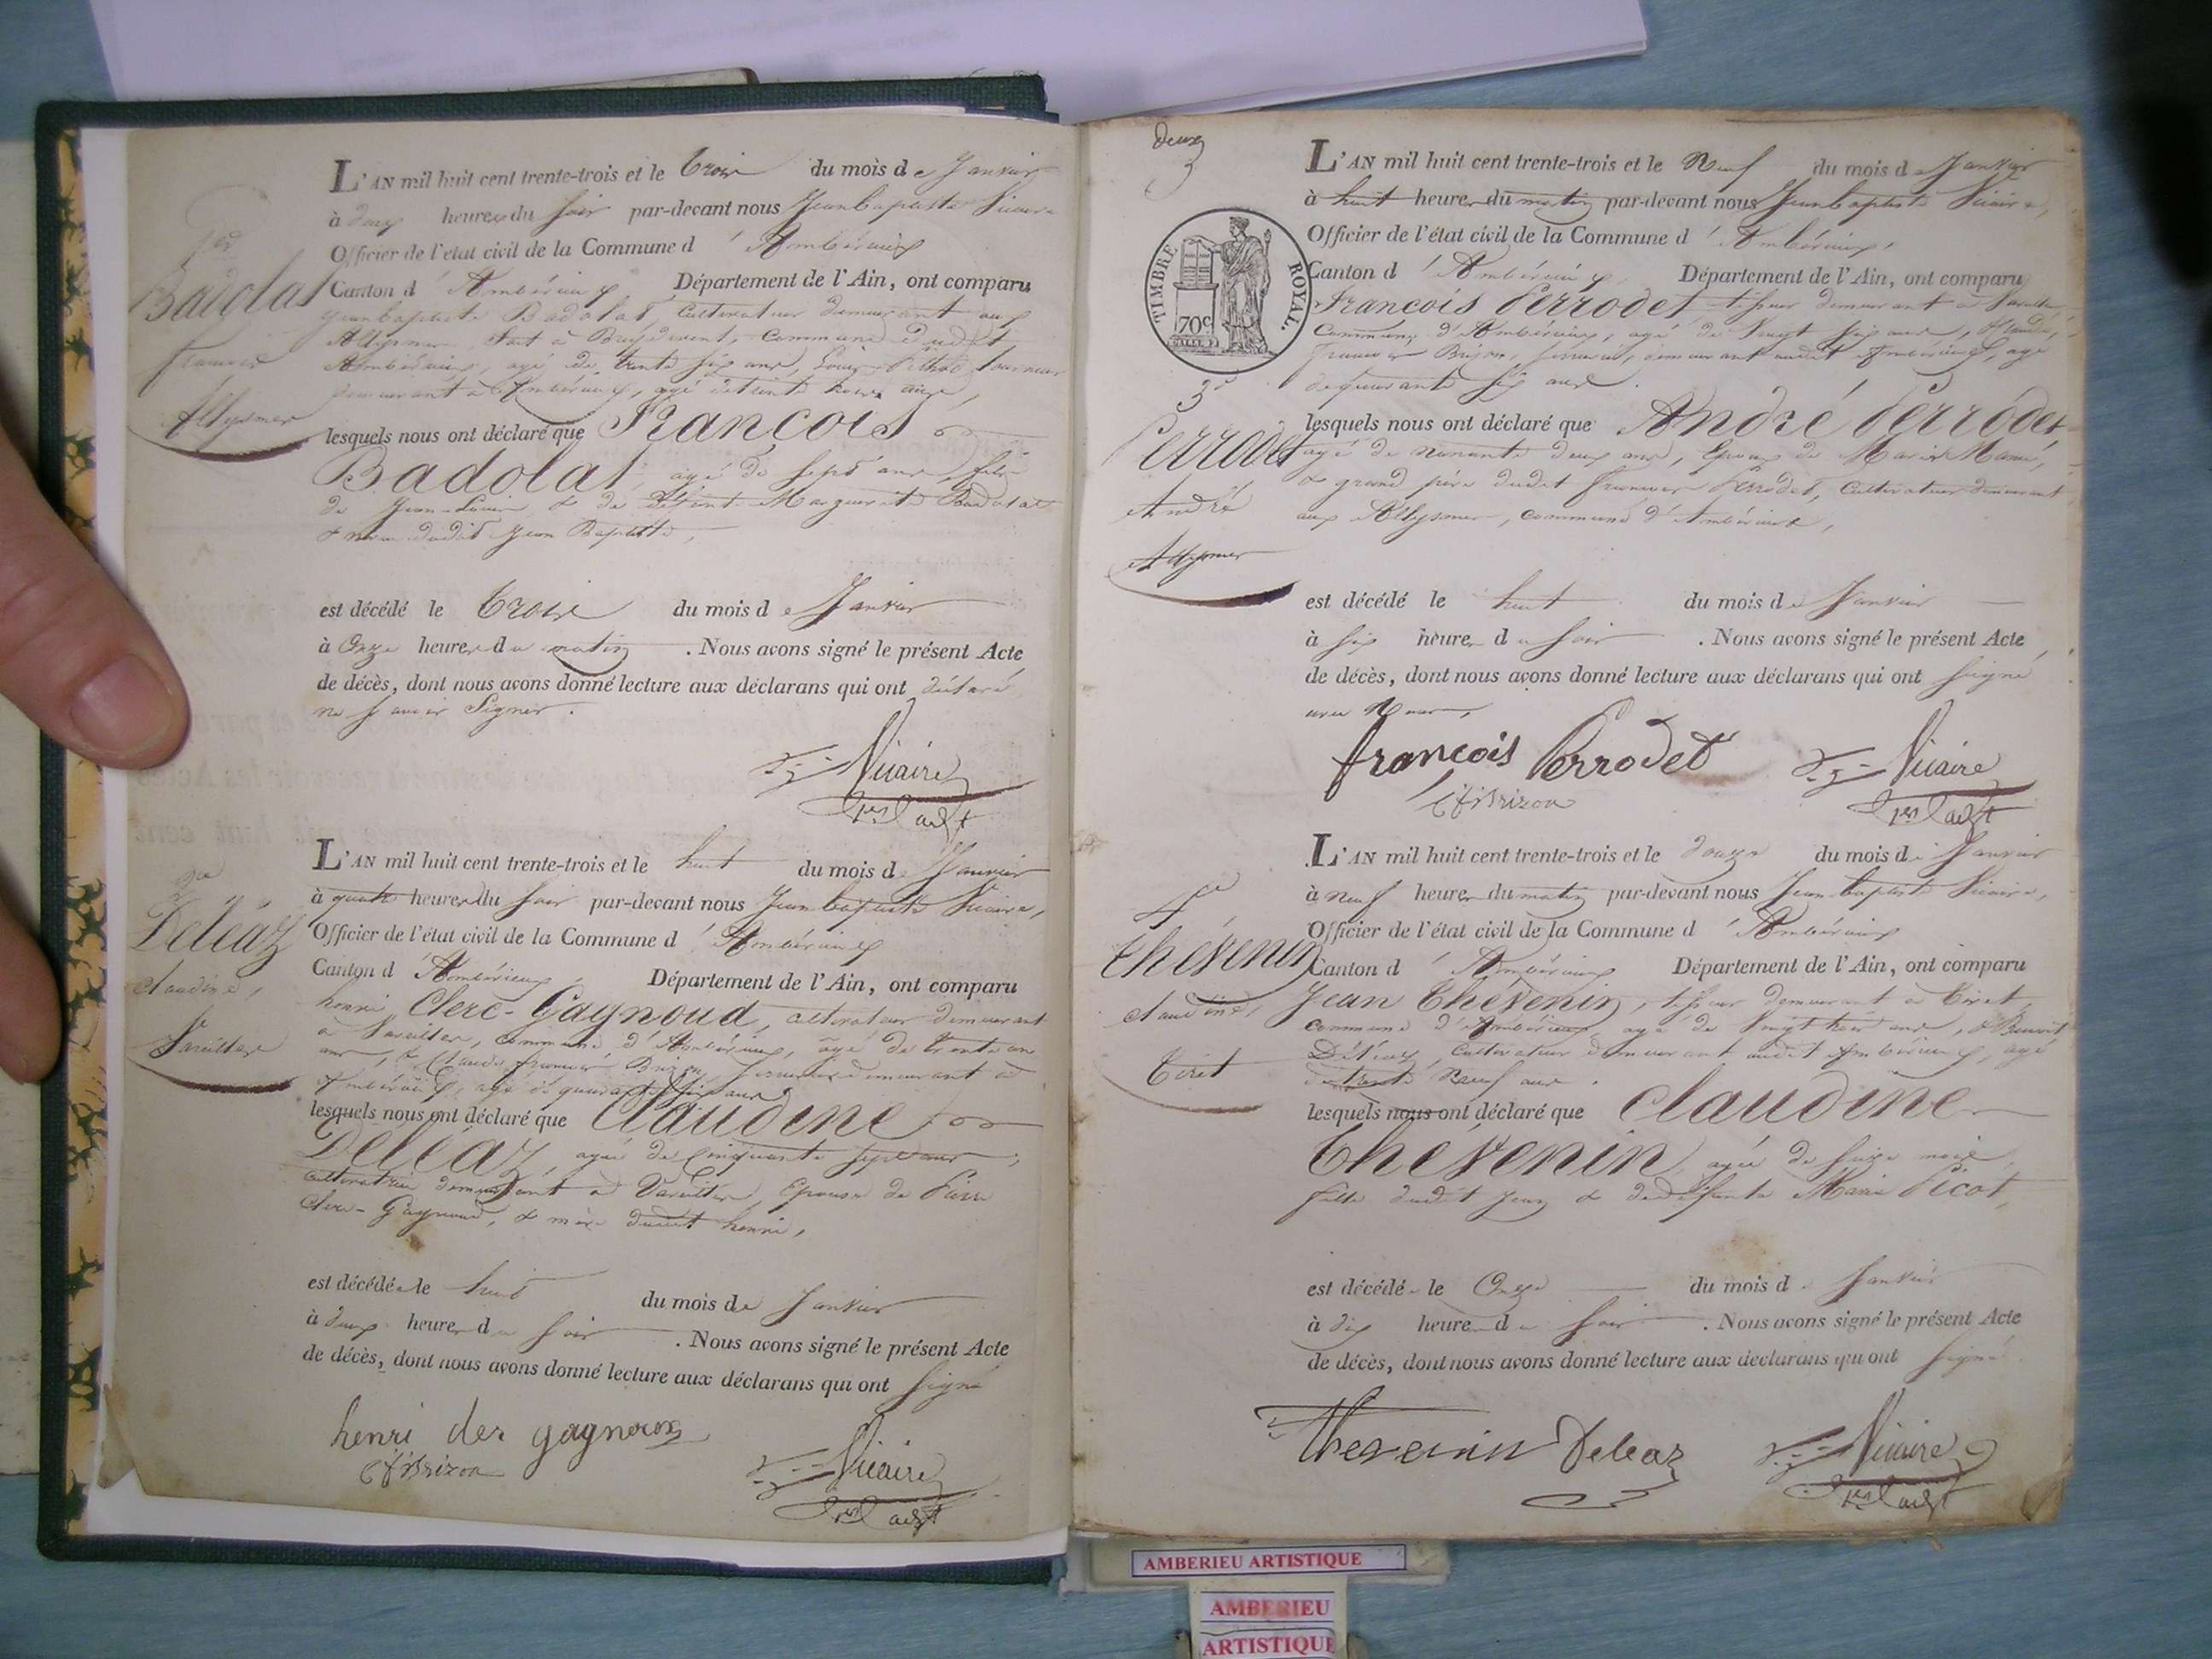 L'AN mil huit cent trente-trois et le trois du mois de Janvier
à deux heures du soir par-devant nous Jean baptiste Vicaire
Officier de l'état civil de la Commune d'Ambérieux
1er
Badolat
françois
Allymes
Canton d'Ambérieux Département de l'Ain, ont comparu
Jean baptiste Badolat, cultivateur demeurant aux
Allymes commune dudit
Ambérieux, agé de trente six ans, Louis tourneur
demeurant à Ambérieux, agé de trente ans,
lesquels nous ont déclaré que François
Badolat, agé de sept ans, fils
de Jean-Louis & de défunte Marguerite Badolat
& neveu dudit Jean Baptiste,
est décédé le trois du mois de Janvier
à onze heures du matin . Nous avons signé le présent Acte
de décès, dont nous avons donné lecture aux déclarans qui ont déclaré
ne savoir signer.
Vicaire
L'AN mil huit cent trente-trois et le huit du mois de Janvier
à quatre heures du soir par-devant nous Jean baptiste Vicaire,
Officier de l'état civil de la Commune d'Ambérieux
2e
Déléaz
claudine,
Vareilles
Canton d'Ambérieux Département de l'Ain, ont comparu
henri Clerc-Gagnoud, cultivateur demeurant
à Vareilles, commune d'Ambérieux, agé de trente un
ans, & Claude françois Brizon, serrurier demeurant à
Ambérieux, agé de quarante six ans
lesquels nous ont déclaré que Claudine
Déléaz, agée de cinquante sept ans,
cultivatrice demeurant à Vareilles, Epouse de
Clerc-Gagnoud, & mère dudit henri,
est décédée le huit du mois de Janvier
à deux heures du soir . Nous avons signé le présent Acte
de décès, dont nous avons donné lecture aux déclarans qui ont signé
henri clerc gagnoux
CfBrizon
Vicaire
deux
L'AN mil huit cent trente-trois et le Neuf du mois de Janvier
à huit heures du matin par-devant nous Jean baptiste Vicaire,
Officier de l'état civil de la Commune d'Ambérieux,
TIMBRE ROYAL.
70c
Canton d'Ambérieux Département de l'Ain, ont comparu
François Perrodet, tisseur demeurant à Vareilles,
commune d'Ambérieux, agé de vingt six ans, & Claude
françois Brizon, serrurier, demeurant audit Ambérieux, agé
de quarante six ans.
3e
Perrodet
André
Allymes
lesquels nous ont déclaré que André Perrodet
agé de nonante deux ans, Epoux de Marie
& grand père dudit françois Perrodet, cultivateur demeurant
aux Allymes, commune d'Ambérieux,
est décédé le huit du mois de Janvier
à six heures du soir . Nous avons signé le présent Acte
de décès, dont nous avons donné lecture aux déclarans qui ont signé
avec Nous,
françois Perrodet
CfBrizon
Vicaire
L'AN mil huit cent trente-trois et le douze du mois de Janvier
à neuf heures du matin par-devant nous Jean baptiste Vicaire,
Officier de l'état civil de la Commune d'Ambérieux
4e
Thévenin
claudine,
Tiret
Canton d'Ambérieux Département de l'Ain, ont comparu
Jean Thévenin, tisseur demeurant à Tiret,
commune d'Ambérieux, agé de vingt huit ans, & Benoit
Déléaz, cultivateur demeurant audit Ambérieux, agé
de trente neuf ans.
lesquels nous ont déclaré que Claudine
Thévenin, agée de seize mois,
fille dudit Jean & de défunte Marie Picot,
est décédée le onze du mois de Janvier
à dix heures du soir . Nous avons signé le présent Acte
de décès, dont nous avons donné lecture aux déclarans qui ont signé
thevenin Deleaz
Vicaire
AMBERIEU ARTISTIQUE
AMBERIEU
ARTISTIQUE